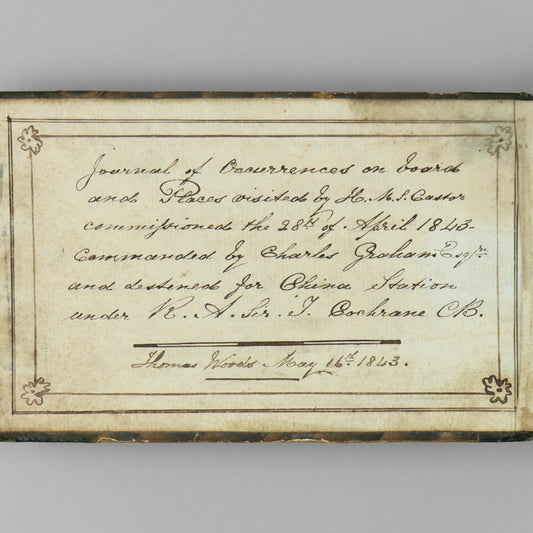 Journal of Occurrences on board
and Places visited by H.M.S. Castor
commissioned the 28th of April 1843-
Commanded by Charles Graham Esqre
and destened for China Station
under R. A. Sir. T. Cochrane CB.
Thomas Woods May 16th 1843.